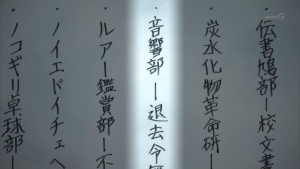 ・伝書鳩部ー校文書
・炭水化物革命研ー
・音響部ー退去令無
・ルアー鑑賞部ー不
・ノイエドイチェヘ
・ノコギリ卓球部ー